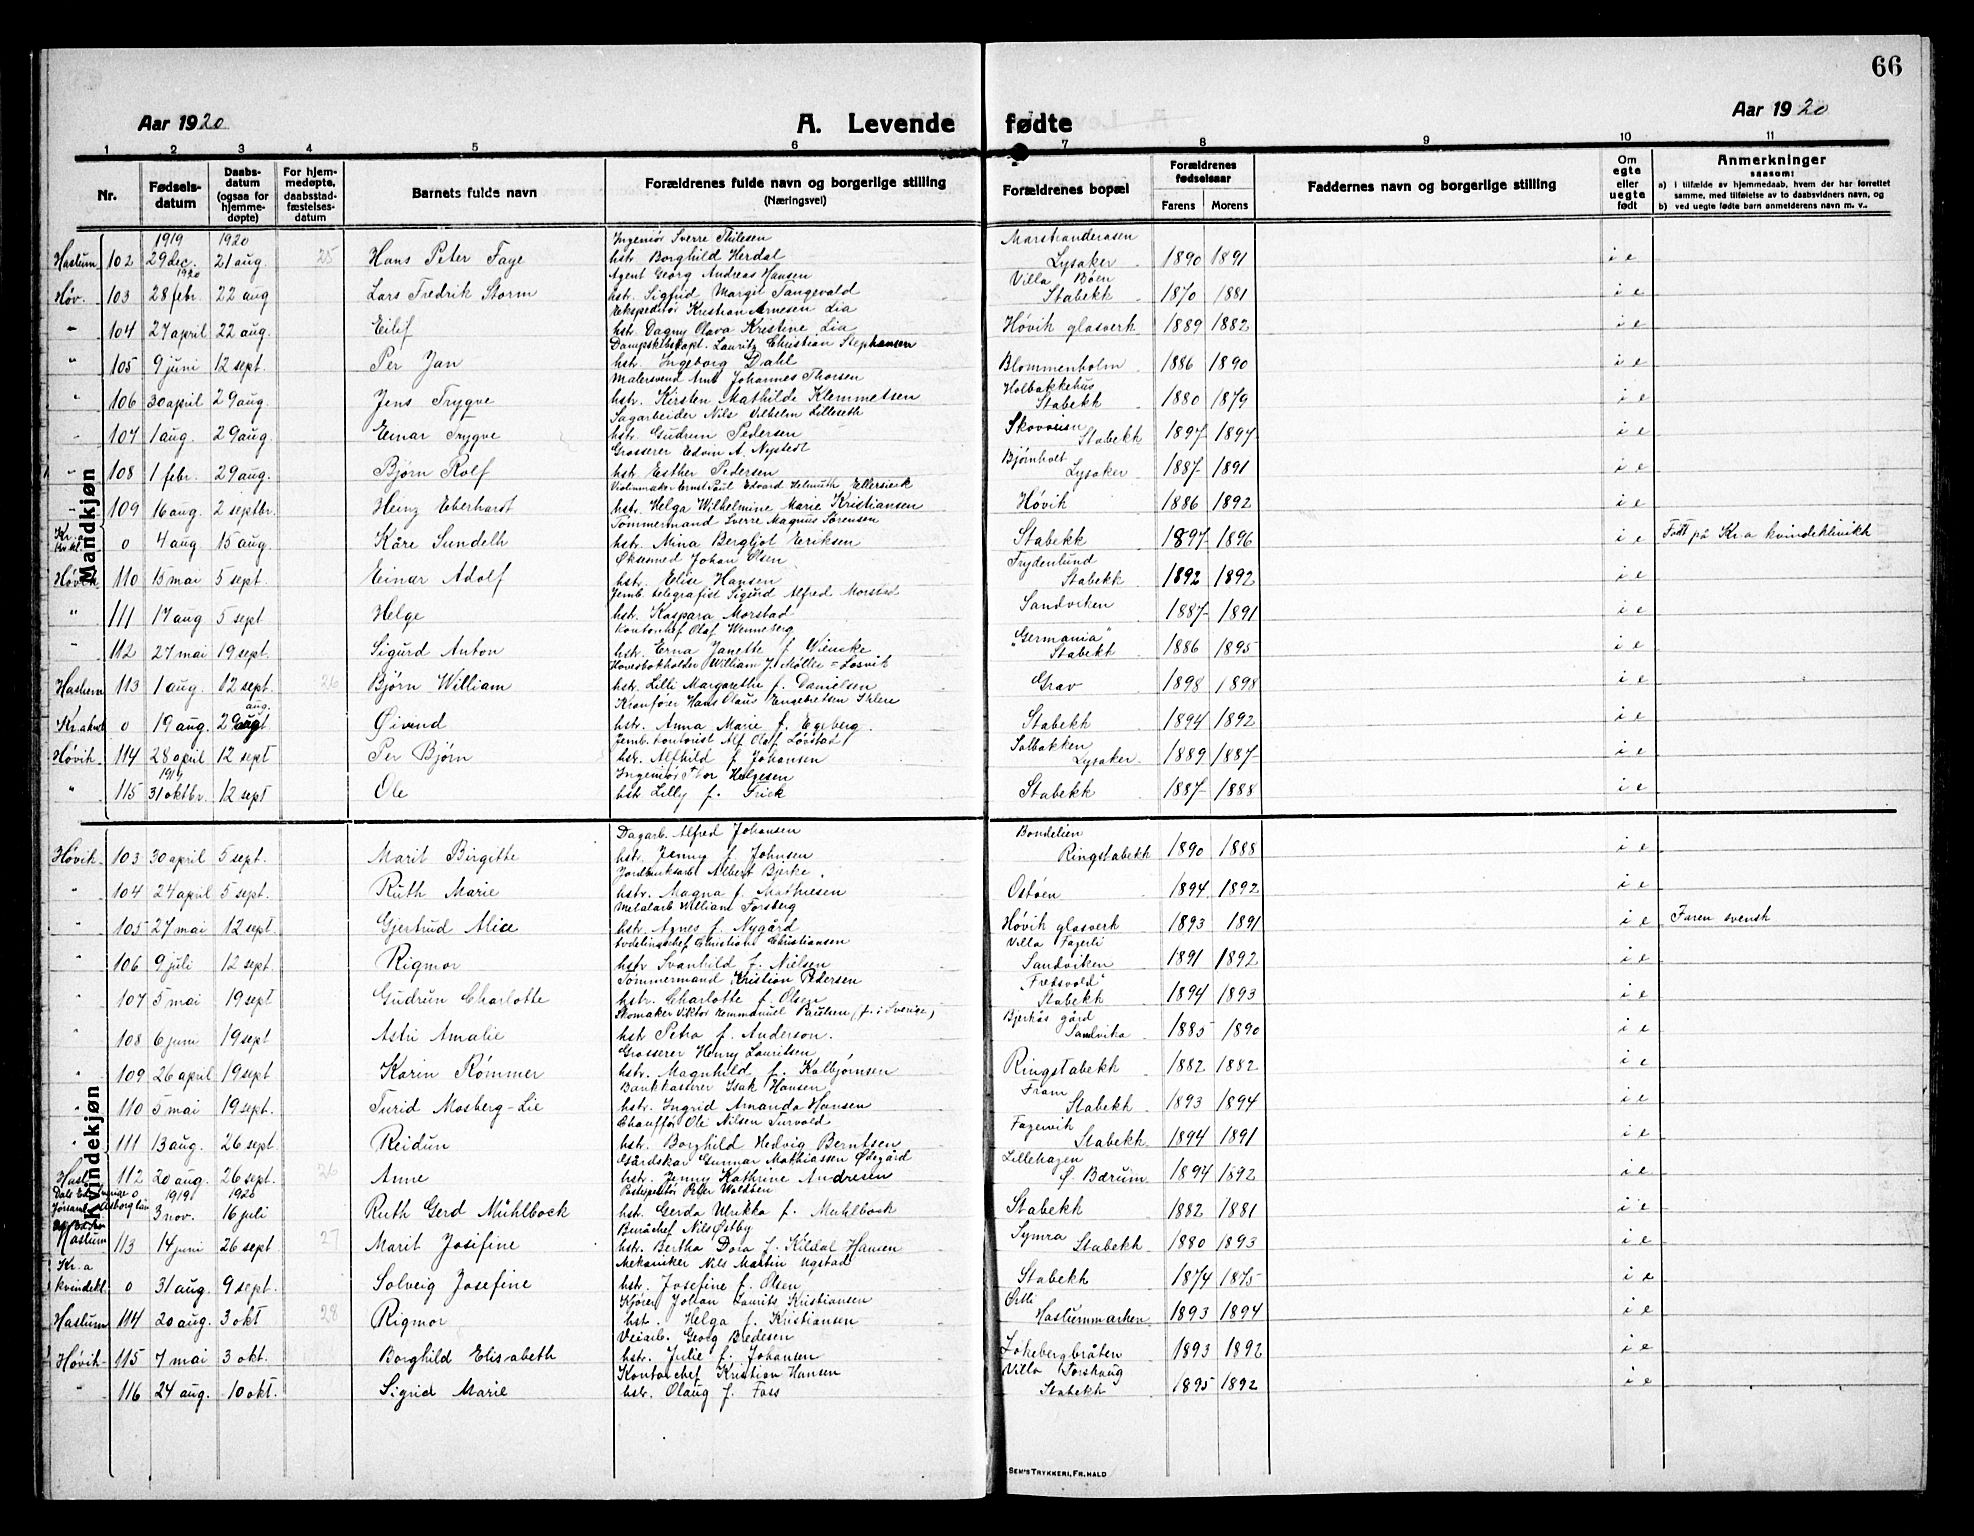 66
Aar 1920
A. Levende fødte
Aar 1920
1 2 3 4 5 6 7 8 9 10 11
Nr.
Fødsels-datum
Daabs-datum (ogsaa for hjemme-døpte)
For hjem-medøpte, daabsstad-fæstelses-datum
Barnets fulde navn
Forældrenes fulde navn og borgerlige stilling (Næringsvei)
Forældrenes bopæl
Forældrenes fødselsaar Farens Morens
Faddernes navn og borgerlige stilling
Om egte eller uegte født
Anmerkninger saasom:
a) i tilfælde av hjemmedaab, hvem der har forrettet samme, med tilføielse av to daabsvidners navn, og
b) ved uegte fødte barn anmelderens navn m. v.
Mandkjøn
1919 1920 Ingeniør Sverre Thilesen Marstranderasen
Haslum 102 29 dec. 21 aug. 25 Hans Peter Faye hstr Borghild Herdal Lysaker 1890 1891 i e
1920 Agent Georg Andreas Hansen Villa Böen
Høv. 103 28 febr 22 aug Lars Fredrik Storm hstr. Sigfrid Margit Tangevald Stabekk 1870 1881 i e
Ekspeditør Kristian Arnesen Lia
" 104 27 april 22 aug. Eilif hstr. Dagny Olava Kristine Lia Høvik glasverk 1889 1882 i e
Dampskibskapt. Lauritz Christian Stephansen
" 105 9 juni 12 sept. Per Jan hstr. Ingeborg Dahl Blommenholm 1886 1890 i e
Malersvend Arnt Johannes Thorsen Holbakkehus
" 106 30 april 29 aug. Jens Trygve hstr. Kirsten Mathilde Klemmetsen Stabekk 1880 1879 i e
Sagarbeider Nils Vilhelm Lilleseth
" 107 1 aug. 29 aug. Einar Trygve hstr Gudrun Pedersen Skovveien Stabekk 1897 1897 i e
Grosserer Edvin A. Nystedt Bjørnholt
" 108 1 febr. 29 aug. Bjørn Rolf hstr. Esther Pedersen Lysaker 1887 1891 i e
Violinmaker Ernst Paul Edvard Helmuth Ellersieck
" 109 16 aug. 2 septbr. Heinz Eberhardt hstr. Helga Wilhelmine Marie Kristiansen Høvik 1886 1892 i e
Tømmermand Sverre Magnus Sørensen
Kr.a Kv.kl. 0 4 aug 15 aug. Kåre Sundelh hstr. Nina Bergljot Eriksen Stabekk 1897 1896 i e Født på Kr.a kvindeklinikk
Øksesmed Johan Olsen Frydenlund
Høvik 110 15 mai 5 sept. Einar Adolf hstr. Elise Hansen Stabekk 1892 1892 i e
Jernb. telegrafist Sigurd Alfred Morstad
" 111 17 aug 5 sept Helge hstr Kaspara Morstad Sandviken 1887 1891 i e
Kontorchef Olaf Wenneberg "Germania"
" 112 27 mai 19 sept. Sigurd Anton hstr. Erna Janette f. Wiencke Stabekk 1886 1895 i e
Hovedbokholder William J. Möller-Losvik
Haslum 113 1 aug. 12 sept. 26 Bjørn William hstr. Lilli Margarethe f. Danielsen Grav 1898 1898 i e
aug. Kranfører Hans Olaus Engebretsen
0 19 aug. 29 Øivind hstr. Anna Marie f. Egeberg. Stabekk 1894 1892 i e
Jernb. kontorist Alf Olaf Løvstad Solbakken
Høvik 114 28 april 12 sept Per Bjørn hstr. Alfhild f. Johansen Lysaker 1889 1887 i e
1919 Ingeniør Thor Helgesen
" 115 31 oktbr. 12 sept Ole hstr Lilly f. Frick Stabekk 1887 1888 i e
Kvindekjøn
Dagarb. Alfred Johansen Bondelien
Høvik 103 30 april 5 sept. Marit Birgitte hstr. Jenny f. Johnsen Ringstabekk 1890 1888 i e
Jordbruksarb Albert Bjerke.
" 104 24 april 5 sept. Ruth Marie hstr. Magna f. Mathiesen Ostøen 1894 1892 i e
Metalarb William Forsberg
" 105 27 mai 12 sept. Gjertrud Alice hstr. Agnes f. Nygård Høvik glasverk 1893 1891 i e Faren svensk
Avdelingschef Christian Christiansen Villa Fagerli
" 106 9 juli 12 sept. Rigmor hstr Svanhild f. Nielsen Sandviken 1891 1892 i e
Tømmermand Kristian Pedersen "Fredsvold"
" 107 5 mai 19 sept Gudrun Charlotte hstr. Charlotte f. Olsen Stabekk 1894 1893 i e
Skomaker Viktor Emmanuel Paulsen (f. i Sverige) Bjerkås gård
" 108 6 juni 19 sept Astri Amalie hstr Petra f. Anderson. Sandvika 1885 1890 i e
Grosserer Henry Lauritsen
" 109 26 april 19 sept Karin Rømmer hstr. Magnhild f. Kalbjørnsen Ringstabekk 1882 1882 i e
Bankkasserer Isak Hansen Fram
" 110 5 mai 19 sept. Turid Mosberg-Lie hstr. Ingrid Amanda Hansen Stabekk 1893 1894 i e
Chauffør Ole Nilsen Turvold Fagervik
" 111 13 aug. 26 sept Reidun hstr. Borghild Hedvig Berntsen Stabekk 1894 1891 i e
Gårdskar Gunnar Mathiassen Ødegård Lillehagen
Hasl. 112 20 aug. 26 sept. 26 Anne hstr. Jenny Kathrine Andresen Ø. Bærum 1894 1892 i e
0 1919 1920
3 nov. 16 juli Ruth Gerd Mühlbock hstr. Gerda Ulrikka f. Muhlbock Stabekk 1882 1881 i e
Burächef Nils Østby Symra
Haslum 113 14 juni 26 sept 27 Marit Josifine hstr. Bertha Dora f. Kildal Hansen Stabekk 1880 1893 i e
Kr.a Mekaniker Nils Martin Ugstad
kvindekl. 0 31 aug. 9 sept. Solveig Josefine hstr. Josefine f. Olsen Stabekk 1874 1875 i e
Kjører Johan Laurits Kristiansen
Haslum 114 20 aug. 3 okt 28 Rigmor hstr. Helga f. Kristiansen Haslummarken 1893 1894 i e
Veiarb. Georg Bredesen
Høvik 115 7 mai 3 okt. Borghild Elisabeth hstr. Julie f. Johansen Løkebergbråten 1893 1892 i e
Kontorchef Kristian Hansen Villa Torshaug
" 116 24 aug. 10 okt. Sigrid Marie hstr. Olaug f. Foss Stabekk 1895 1892 i e
SEM'S TRYKKERI, FR.HALD